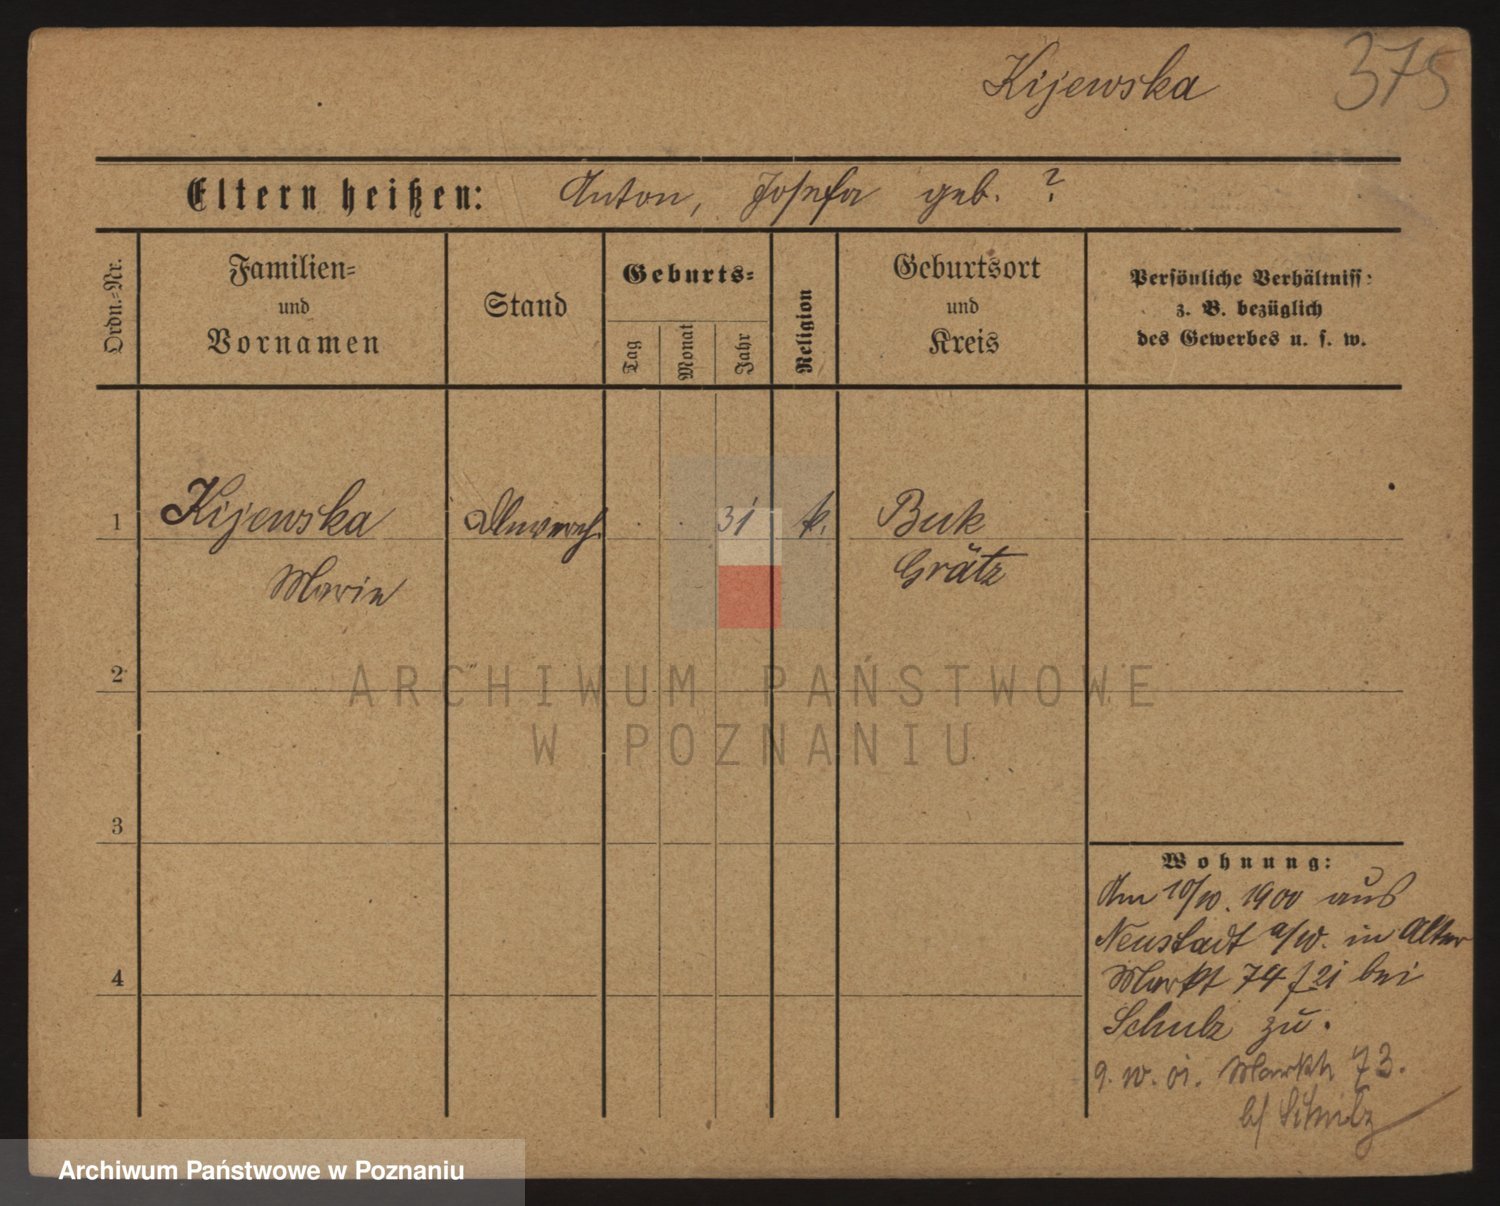 Kijewska 375
Eltern heißen: Anton, Josefa geb. ?
Ordn.-Nr.
Familien- und Vornamen
Stand
Geburts-
Tag
Monat
Jahr
Religion
Geburtsort und Kreis
Persönliche Verhältniss: z. B. bezüglich des Gewerbes u. s. w.
1 Kijewska 31 k. Buk
Marie Grätz
2
ARCHIWUM PAŃSTWOWE
W POZNANIU
3
Wohnung:
Am 10/10. 1900 aus
Neustadt a/W. in Alter
4
Markt 74 bei
Schulz zu.
9. 10. 01. Markt 73.
b/ Schulz
Archiwum Państwowe w Poznaniu